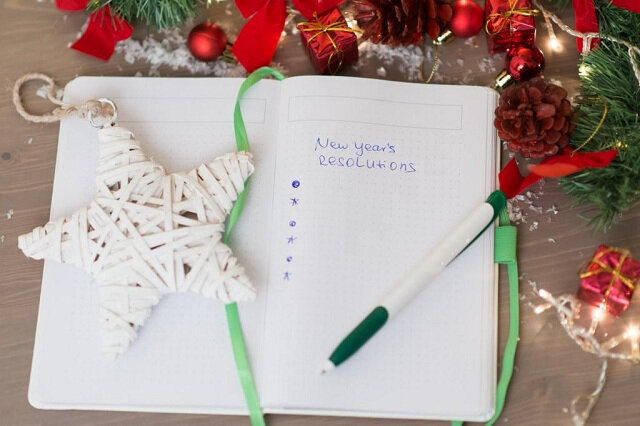 New Year's
Resolutions